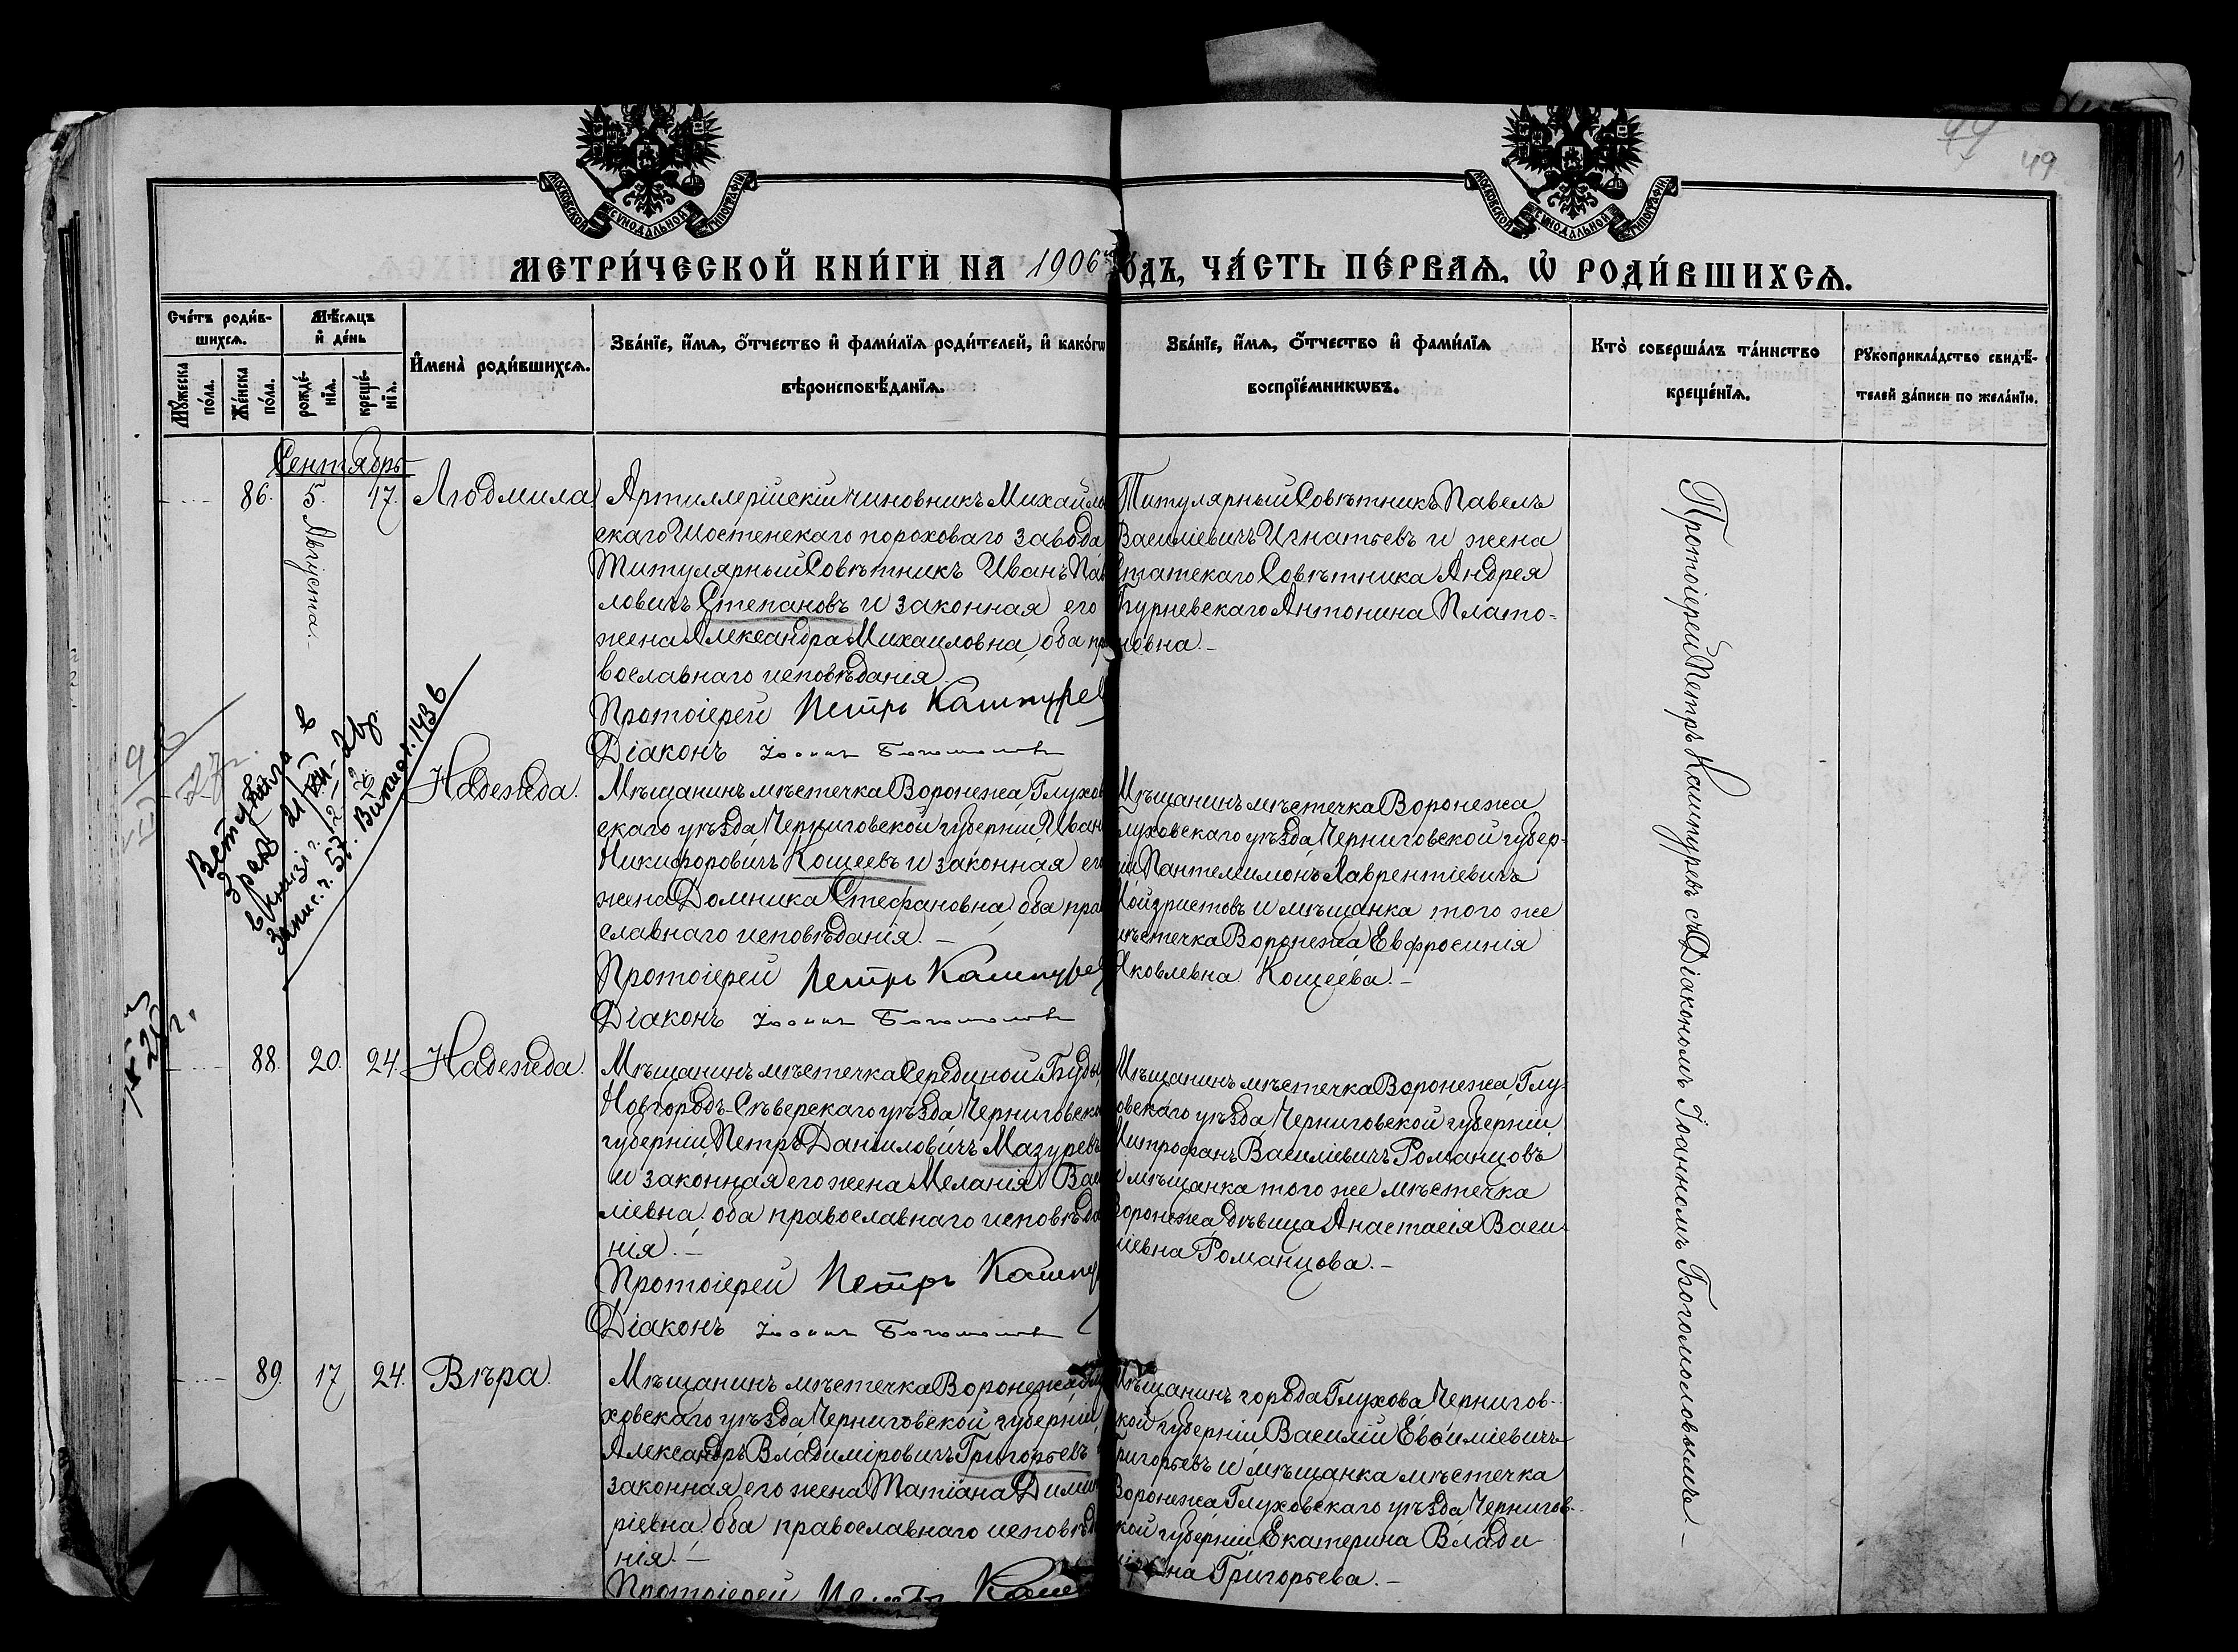 99
49
МОСКОВСКОЙ СѴНОДАЛЬНОЙ ТИПОГРАФІИ
МОСКОВСКОЙ СѴНОДАЛЬНОЙ ТИПОГРАФІИ
МЕТРИ́ЧЕСКОЙ КНИ́ГИ НА 1906 го́дъ, ЧА́СТЬ ПЕ́РВАЯ, Ѡ҆ РОДИ́ВШИХСЯ.
Сче́тъ роди́в-
шихся.
Мѣ́сяцъ
и҆ де́нь
Мꙋ́жеска
по́ла.
Же́нска
по́ла.
рожде́-
нїя.
креще́-
нїя.
И҆мена̀ роди́вшихся.
Зва́нїе, и҆́мя, ѻ҆́тчество и҆ фами́лїя роди́телей, и҆ како́гѡ
вѣроисповѣ́данїя.
Зва́нїе, и҆́мя, ѻ҆́тчество и҆ фами́лїя
воспрїе́мникѡвъ.
Кто̀ соверша́лъ та́инство
креще́нїя.
Рꙋкоприкла́дство свидѣ́-
телей за́писи по жела́нїю.
Сентябрь
86. 5. Августа. 17. Людмила
Артиллерійскій чиновникъ Михайлов
скаго Шостенскаго пороховаго завода
Титулярный Совѣтникъ Иванъ Пав
ловичъ Степановъ и законная его
жена Александра Михаиловна, оба пра
вославнаго исповѣданія.
Протоіерей Петръ Кашпуревъ
Діаконъ Іоаннъ Богомоловъ
Титулярный Совѣтникъ Павелъ
Василіевичъ Игнатьевъ и жена
Статскаго Совѣтника Андрея
Бурневскаго Антонина Плато-
новна.–
Надежда.
Мѣщанинъ мѣстечка Воронежа, Глухов
скаго уѣзда, Черниговской губерніи Иван
Никифоровичъ Кощеевъ и законная его
жена Домника Стефановна, оба право
славнаго исповѣданія.–
Протоіерей Петръ Кашпуревъ
Діаконъ Іоаннъ Богомоловъ
Мѣщанинъ мѣстечка Воронежа
Глуховскаго уѣзда, Черниговской губер-
ніи Пантелимонъ Лаврентіевичъ
и мѣщанка того же
мѣстечка Воронежа Евфросинія
Яковлевна Кощеева.–
88. 20. 24. Надежда.
Мѣщанинъ мѣстечка Серединой Буды,
Новгородъ-Сѣверскаго уѣзда, Черниговской
губерніи, Петръ Даніиловичъ Мазуревъ
и законная его жена Меланія Васи
ліевна, оба православнаго исповѣда
нія.–
Протоіерей Петръ Кашпу
Діаконъ Іоаннъ Богомоловъ
Мѣщанинъ мѣстечка Воронежа, Глу-
ховскаго уѣзда Черниговской губерніи,
Митрофанъ Василіевичъ Романцовъ
и мѣщанка того же мѣстечка
Воронежа дѣвица Анастасія Васи-
ліевна Романцова.–
89. 17 24. Вѣра.
Мѣщанинъ мѣстечка Воронежа, Глу
ховскаго уѣзда Черниговской губерніи
Александръ Владиміровичъ Григорьевъ и
законная его жена Татіана Дими
ріевна, оба православнаго исповѣда
нія.–
Протоіерей Петръ Каш
Мѣщанинъ города Глухова, Чернигов-
ской губерніи Василій Евѳиміевичъ
Григорьевъ и мѣщанка мѣстечка
Воронежа, Глуховскаго уѣзда Чернигов-
ской губерніи Екатерина Влади-
міровна Григорьева.–
Протоіерей Петръ Кашпуревъ съ Діакономъ Іоанномъ Богомоловымъ.–